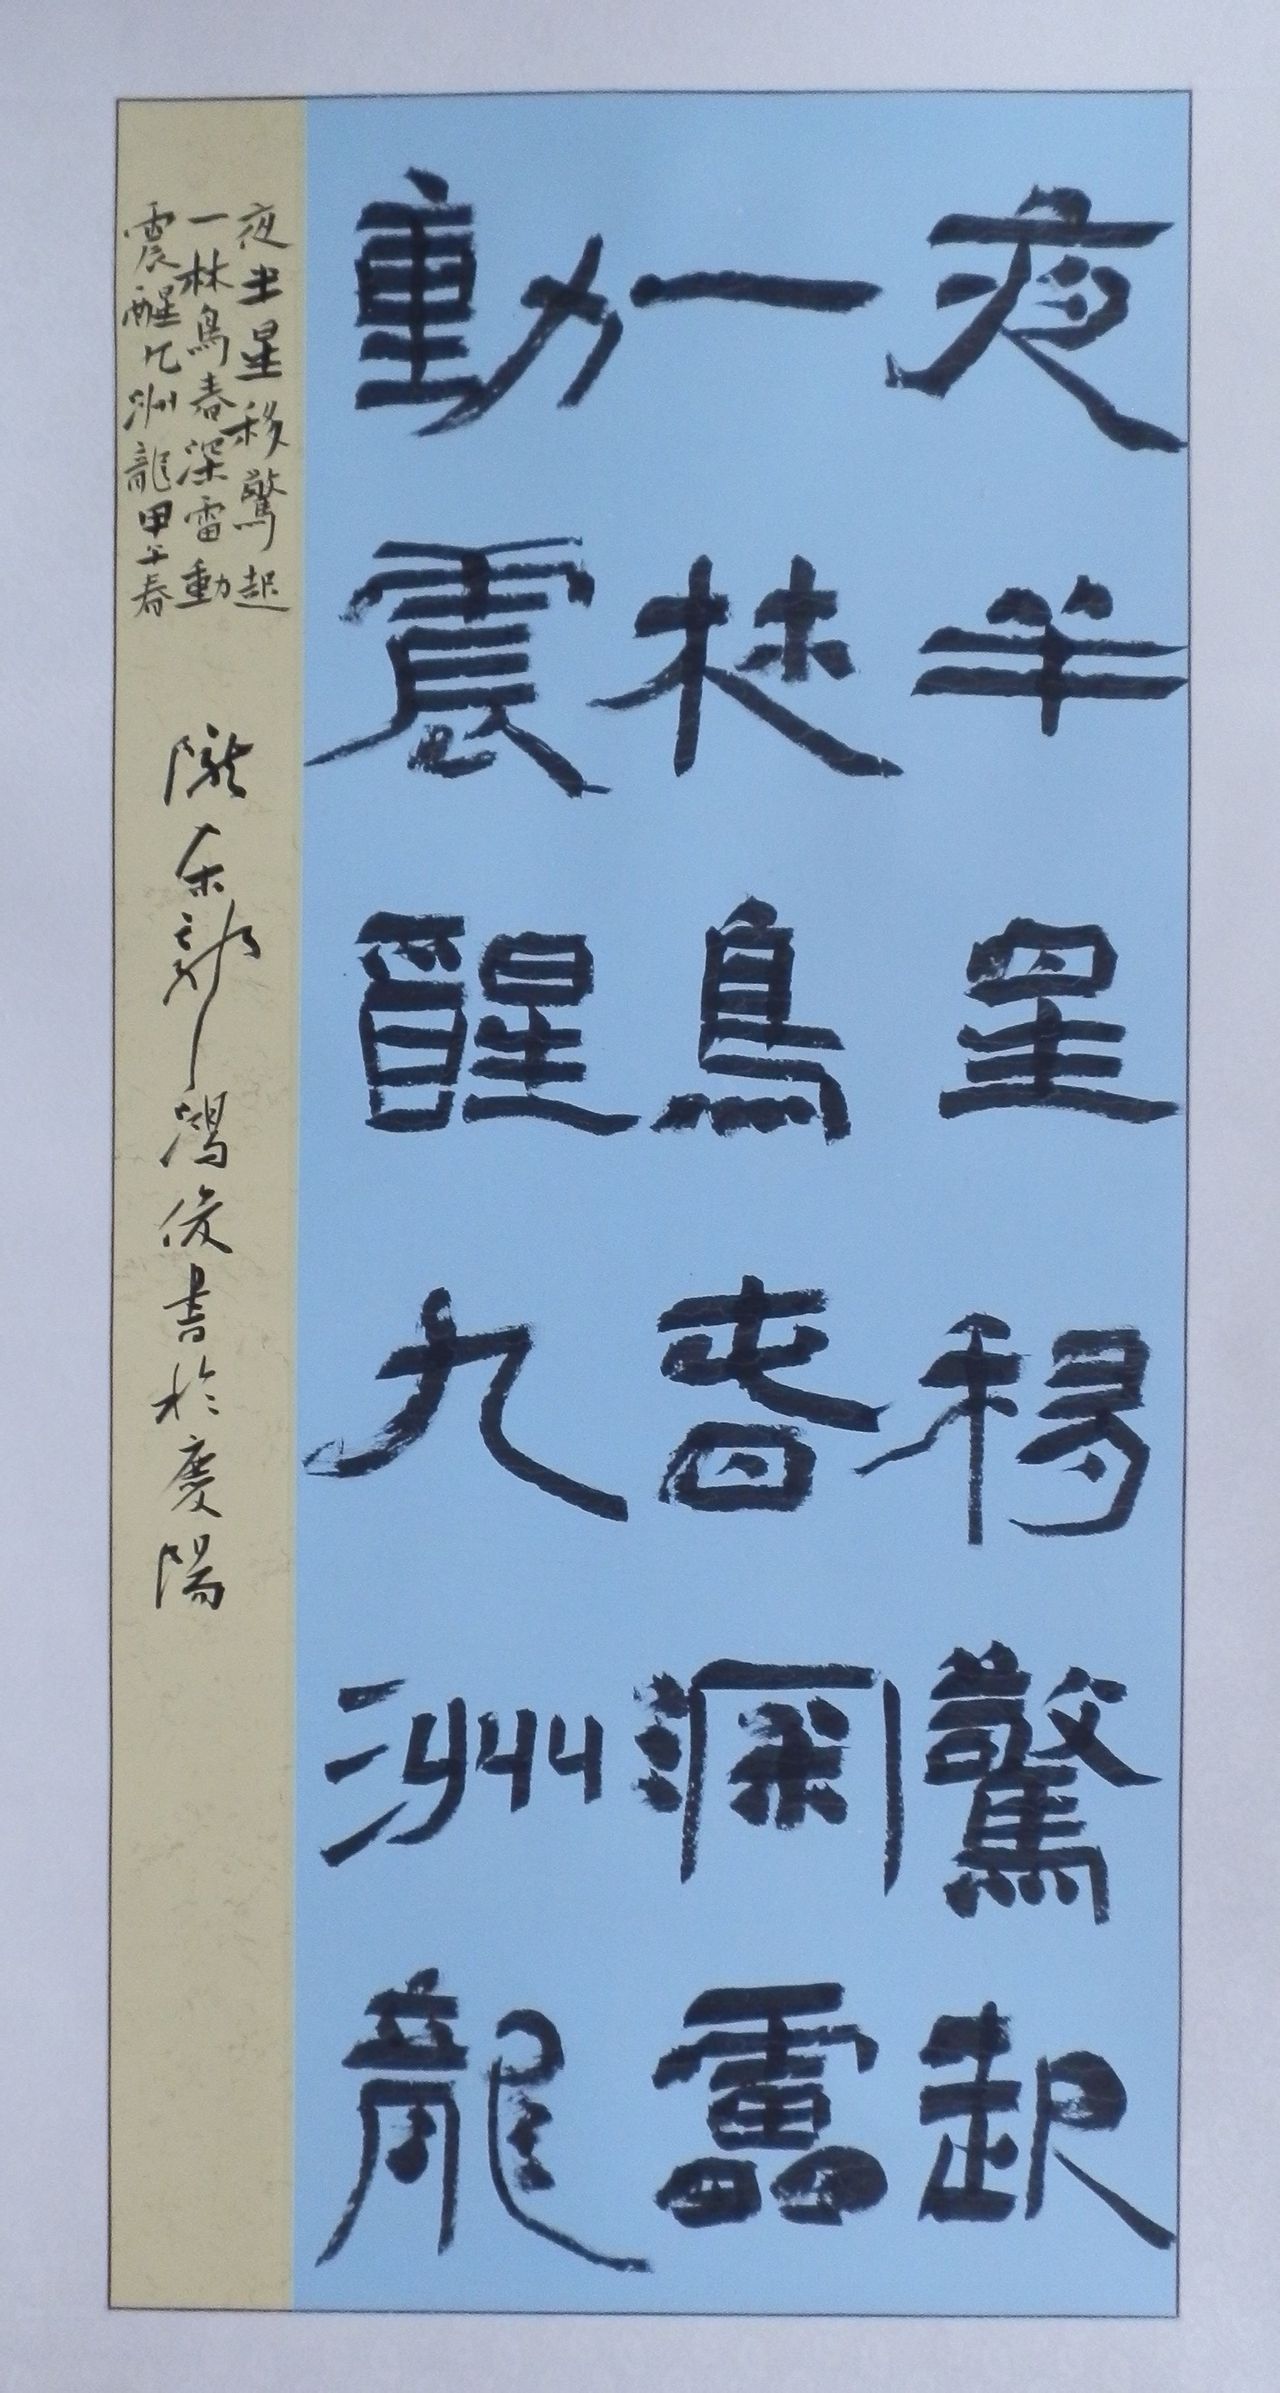 夜半星移驚起
一林鳥春深雷
動震醒九洲龍
夜半星移驚起
一林鳥春深雷動
震醒九洲龍甲午春
隴东郭鴻俊書於慶陽